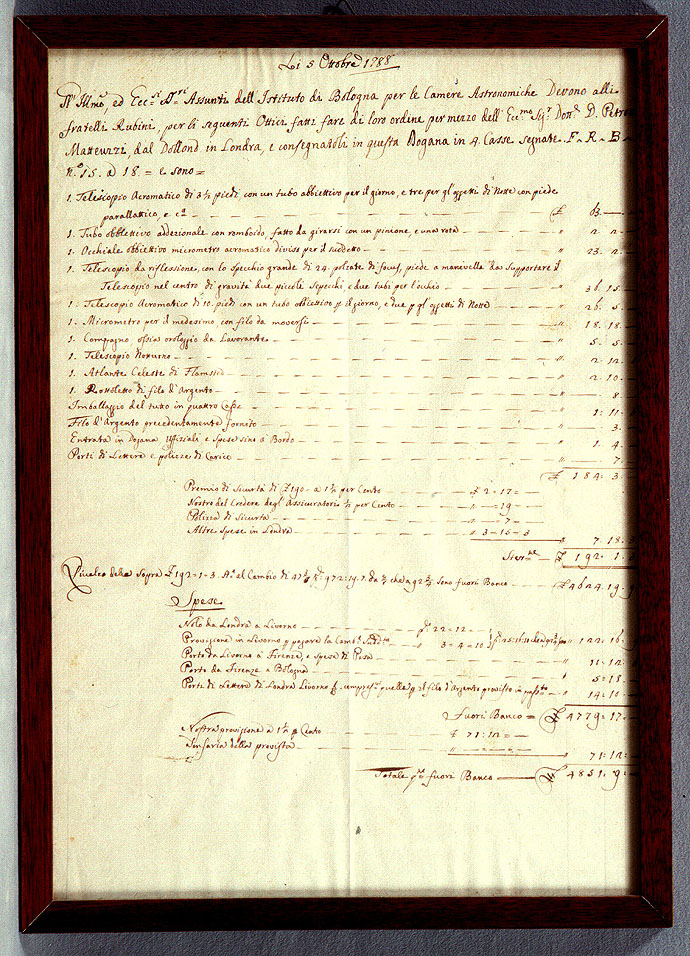 Li 5 Ottobre 1788
Ill.mi ed Ecc.si Sri Assunti dell'Istituto di Bologna per le Camere Astronomiche Devono alli
fratelli Rubini, per li seguenti Ottici fatti fare di loro ordine per mezzo dell' Ecc.mo Sigr Dottr D. Petro
Matteuzzi, dal Dollond in Londra, e consegnatoli in questa Dogana in 4. Casse segnate F-R-B-
N.o 15. a 18. = e sono =
1. Telescopio Acromatico di 3½ piedi, con un tubo obbiettivo per il giorno, e tre per gl'oggetti di Notte con piede
parallattico, e ca £ 63.
1. Tubo obbiettivo addezionale con romboido, fatto da girarsi con un pinione, e una rota " 2. 2.
1. Occhiale obbiettivo micrometro acromatico diviso per il suddetto " 23. 2.
1. Telescopio da riflessione, con lo specchio grande di 24. polzate di focus, piede a manevella da supportare il
Telescopio nel centro di gravità due piccoli specchi e due tubi per l'occhio " 36. 15.
1. Telescopio Acromatico di 10. piedi con un tubo obbiettivo p il giorno, e due p gl'oggetti di Notte " 26. 5.
1. Micrometro per il medesimo con filo da moversi " 18. 18.
1. Compagno ossia orologgio da Lavorante " 5. 5.
1. Telescopio Notturno " 2. 12.
1. Atlante Celeste di Flamstid " 2. 10.
1. Rottoletto di filo d'Argento " 8.
Imballaggio del tutto in quattro Casse 1. 11.
Filo d'Argento precedentemente fornito " 3.
Entrata in Dogana Uffiziali e Spese sino a Bordo 1. 4.
Porti di Lettere e polizze di Carico " 7.
£ 184: 3.
Premio di Sicurtà di £ 190 - a 1½ per Cento £ 2 = 17 =
Nostro del Credere degl'Assicuratori ½ per Cento " - 19 -
Polizza di Sicurtà " - 7 -
Altre Spese in Londra " 3 - 15 - 3
" 7. 18. 3
£ 192. 1. 3
della Sopra £ 192 = 1 = 3. Al Cambio di sono fuori Banco £ 4624. 19.
Spese
Nolo da Londra a Livorno 22 = 12
Provisione in Livorno p pagare la " 3 - 4 = 10 " 122. 16.
Porto da Livorno a Firenze, e Spese di Pisa " 11. 12.
Porto da Firenze a Bologna " 5 = 18.
Porti di Lettere di Londra Livorno quella p il filo d'Argento provisto in " 14: 10
Fuori Banco = £ 4779. 17.
Nostra provisione a 1½ p Cento £ 71: 12 =
Senseria della provista " 71: 12.
Totale fuori Banco £ 4851. 9.